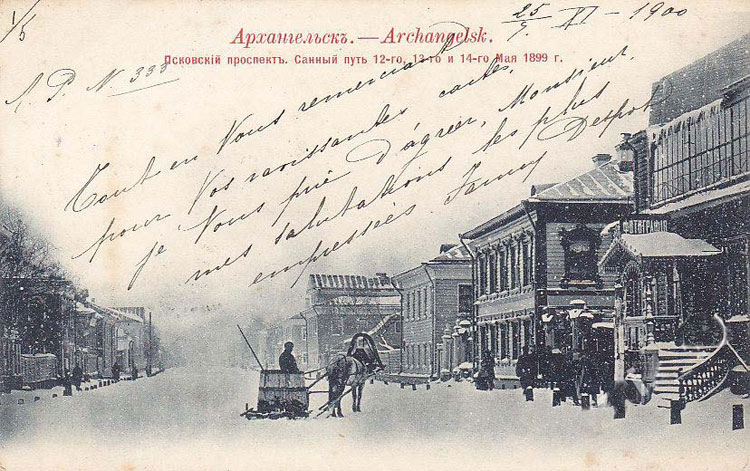 1/5
Архангельскъ.—Archangelsk.
25/9 VI - 1900
Псковскій проспектъ. Санный путь 12-го, 13-го и 14-го Мая 1899 г.
A P. N 333
Tout en Vous remerciant
pour Vos ravissantes cartes,
je Vous prie d'agréer, Monsieur,
mes salutations les plus
empressées Fanny Despot